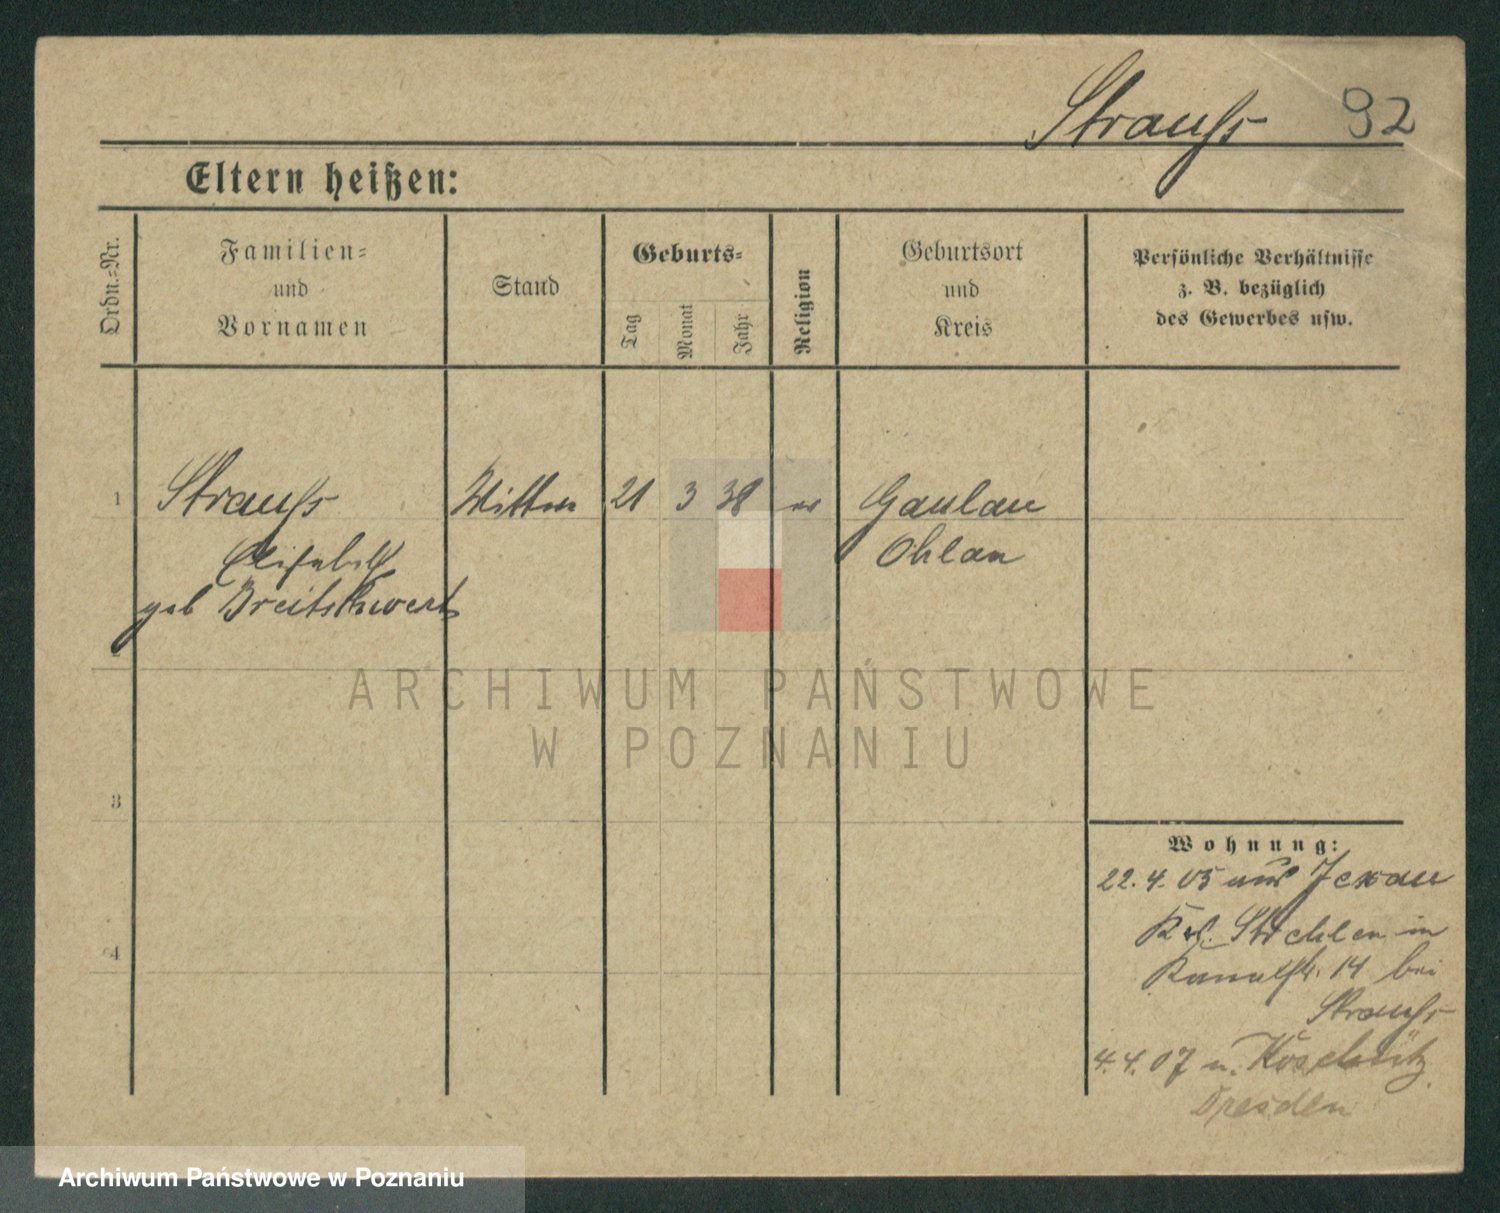 Strauß 92
Eltern heißen:
Ordn.=Nr.
Familien=
und
Vornamen
Stand
Geburts=
Tag
Monat
Jahr
Religion
Geburtsort
und
Kreis
Persönliche Verhältnisse
z. B. bezüglich
des Gewerbes usw.
1 Strauß Wittwe 21 3 38 ev Gaulau
Elisabeth Ohlau
geb
2
3
4
ARCHIWUM PAŃSTWOWE
W POZNANIU
Wohnung:
22. 4. 05 aus
Krs. Strehlen in
Kanalstr. 14 bei
Strauß
4. 4. 07 n.
Dresden
Archiwum Państwowe w Poznaniu